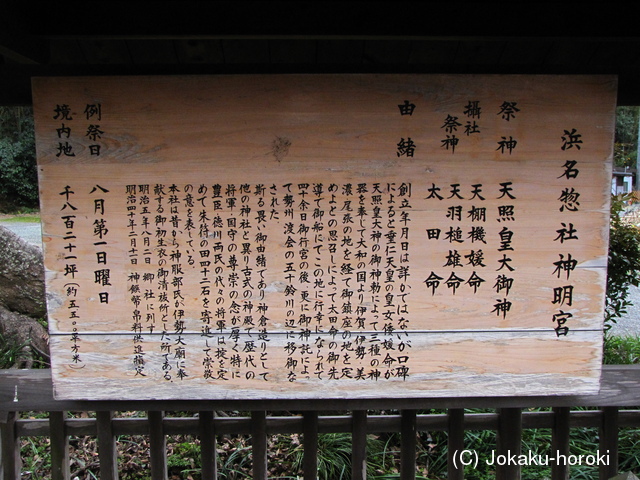 浜名惣社神明宮
祭神 天照皇大御神
攝社祭神 天棚機媛命
天羽槌雄命
太田命
由緒
創立年月日は詳かではないが口碑
によると垂仁天皇の皇女倭媛命が
天照皇大神の御神勅によって三種の神
器を奉じて大和の国より伊賀伊勢美
濃尾張の地を経て御鎮座の地を定
めよとの思召しによって太田命の御先
導で御船にてこの地に行幸になられて
四十余日御行宮の後、更に御神託によ
て勢州渡会の五十鈴川の辺に移御な
された。
斯る畏い御由緒であり神倉造りとして
他の神社と異り古式の神殿で歴代の
将軍、国守の尊崇の念が厚く特に
豊臣、徳川両氏の代々の将軍は掟を定
めて朱符の田四十二石を寄進して崇敬
の意を表している。
本社は昔から神服部氏が伊勢大廟に奉
献する御初生衣の御清祓所とした所である。
明治五年八月二日 郷社に列す
明治四十年二月二日 神饌幣帛料供進指定
例祭日 八月第一日曜日
境内地 千八百二十一坪
(C) Jokaku-horoki